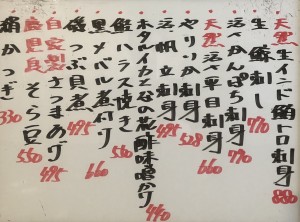 天然生インド鮪トロ刺身 880
生鯵刺し 770
活〆かんぱち刺身 770
天然活〆平目刺身 660
やりいか刺身 528
活〆帆立刺身 495
ホタルイカと谷の花酢味噌がけ 440
鮭ハラス焼き 550
黒メバル煮付 660
磯つぶ貝煮 495
自家製さつまあげ 495
鹿児島産そら豆 550
鯖かつぎ 330